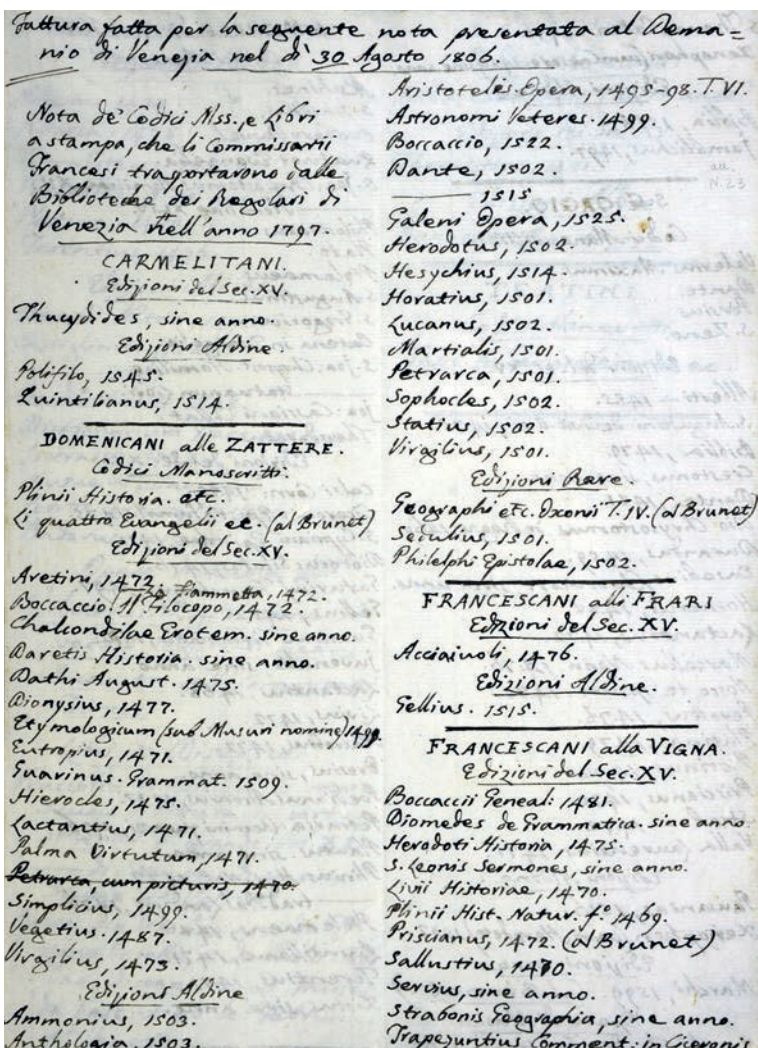 Fattura fatta per la seguente nota presentata al Dema=
nio di Venezia nel dì 30 Agosto 1806.
Nota de' Codici Mss., e Libri
a stampa, che li Commissarii
Francesi trasportarono dalle
Biblioteche dei Regolari di
Venezia nell'anno 1797.
CARMELITANI.
Edizioni del Sec. XV.
Thucydides, sine anno.
Edizioni Aldine.
Polifilo, 1545.
Quintilianus, 1514.
DOMENICANI alle ZATTERE.
Codici Manoscritti.
Plinii Historia. etc.
Li quattro Evangelii ec. (al Brunet)
Edizioni del Sec. XV.
Aretini, 1472.
Boccaccio. Il Filocopo, 1472. Fiammetta, 1472.
Chalcondilae Erotem. sine anno.
Daretis Historia. sine anno.
Dathi August. 1475.
Dionysius, 1477.
Etymologicum (sub Musuri nomine) 1499.
Eutropius, 1471.
Guarinus. Grammat. 1509.
Hierocles, 1475.
Lactantius, 1471.
Palma Virtutum, 1471.
Petrarca, cum picturis, 1470.
Simplicius, 1499.
Vegetius. 1487.
Virgilius, 1473.
Edizioni Aldine
Ammonius, 1503.
Anthologia, 1503.
Aristotelis Opera, 1495-98. T. VI.
Astronomi Veteres. 1499.
Boccaccio, 1522.
Dante, 1502.
—— 1515
Galeni Opera, 1525.
Herodotus, 1502.
Hesychius, 1514.
Horatius, 1501.
Lucanus, 1502.
Martialis, 1501.
Petrarca, 1501.
Sophocles, 1502.
Statius, 1502.
Virgilius, 1501.
Edizioni Rare.
Geographi etc. Oxonii T. IV. (al Brunet)
Seculius, 1501.
Philelphi Epistolae, 1502.
FRANCESCANI alli FRARI
Edizioni del Sec. XV.
Acciaiuoli, 1476.
Edizioni Aldine.
Gellius. 1515.
FRANCESCANI alla VIGNA.
Edizioni del Sec. XV.
Boccaccii Geneal: 1481.
Diomedes de Grammatica. sine anno.
Herodoti Historia, 1475.
S. Leonis Sermones, sine anno.
Livii Historiae, 1470.
Plinii Hist. Natur. f.º 1469.
Priscianus, 1472. (al Brunet)
Sallustius, 1470.
Servius, sine anno.
Strabonis Geographia, sine anno.
Trapezuntius Comment: in Ciceronis